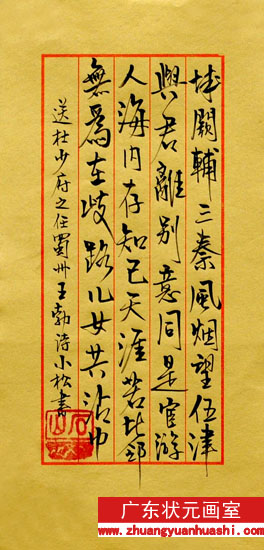 城闕輔三秦風烟望伍津
與君離別意同是宦游
人海内存知己天涯若比鄰
無爲在歧路儿女共沾巾
送杜少府之任蜀州王勃诗小松書
广东状元画室
www.zhuangyuanhuashi.com